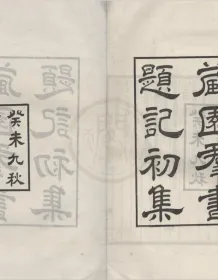 藏園羣書
題記初集
癸未九秋